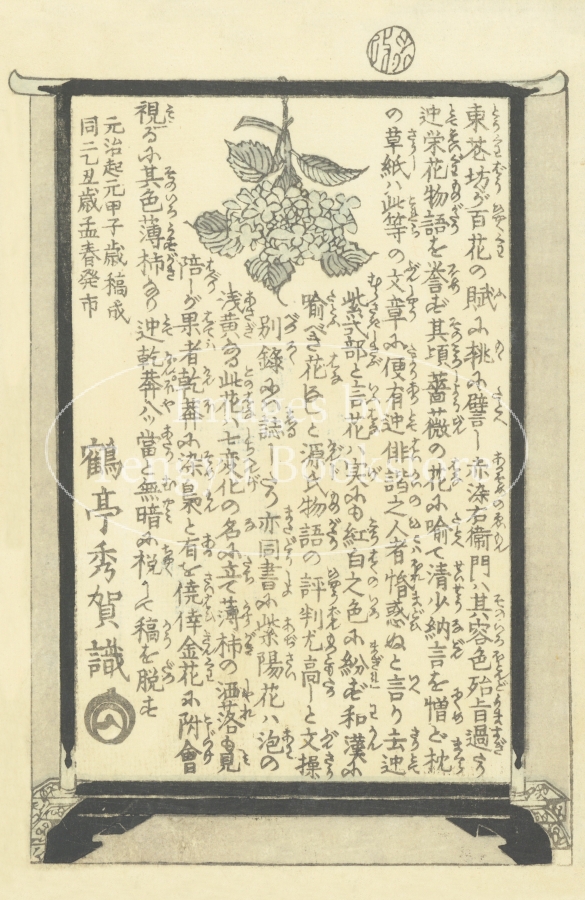 東花坊が百花の賦に桃に譬し赤染右衛門ハ其容色殆旨過たり
迚栄花物語を誉ず其頃薔薇の花に喩て清少納言を憎ど枕
の草紙ハ此等の文章に便有迚俳諧之人者惛惑ぬと言り去迚
紫式部と言花ハ実にも紅白之色に紛ず和漢に
喩べき花なしと源氏物語の評判尤高しと文操
別録に誌たり亦同書に紫陽花ハ泡の
浅黄なる此花ハ七変化の名に立て薄柿の洒落も見
陪しが果者乾莽に染梟と有を僥倖金花に附會
視るに其色薄柿なり迚乾莽ハッ當と無暗に税して稿を脱す
元治起元甲子歳稿成
同二乙丑歳孟春発市
鶴亭秀賀識
Images by
Tengyu Bookstore